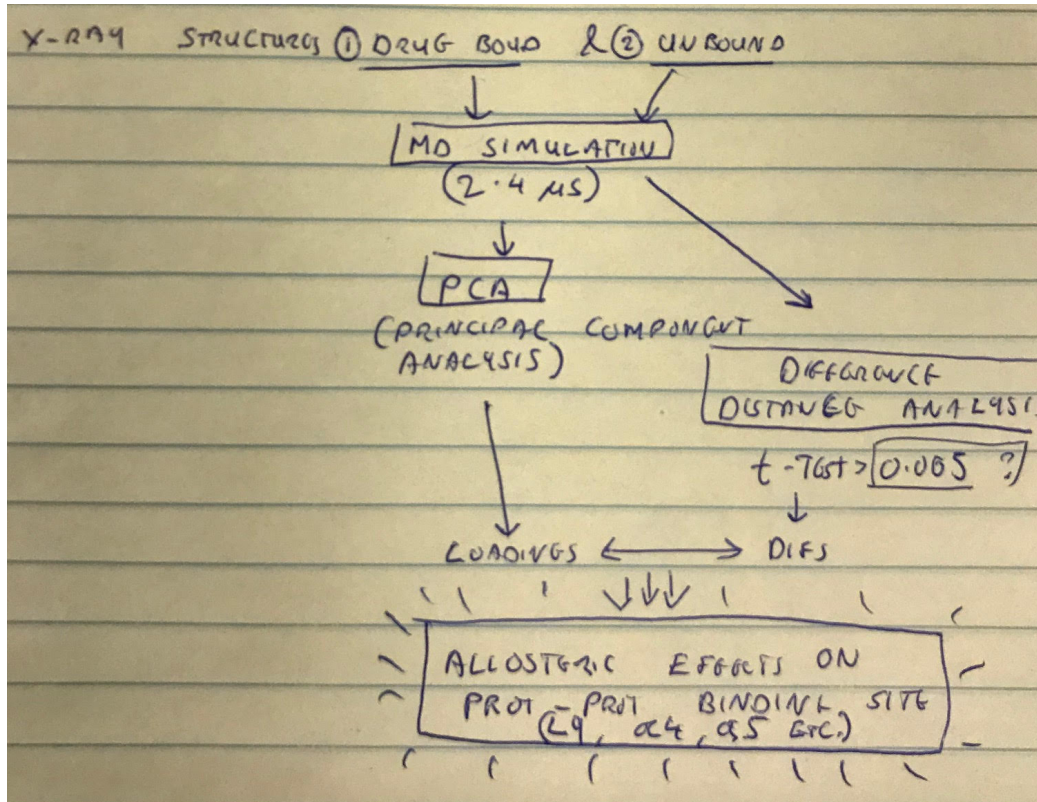 X-RAY STRUCTURES ① DRUG BOUD & ② UNBOUND
MD SIMULATION
(2.4 µS)
PCA
(PRINCIPAL COMPONENT
ANALYSIS)
DIFFERENCE
DISTANCE ANALYSI
t-TEST > 0.005 ?
LOADINGS DIFS
ALLOSTERIC EFFECTS ON
PROT-PROT BINDING SITE
(L9, α4, α5 ETC.)